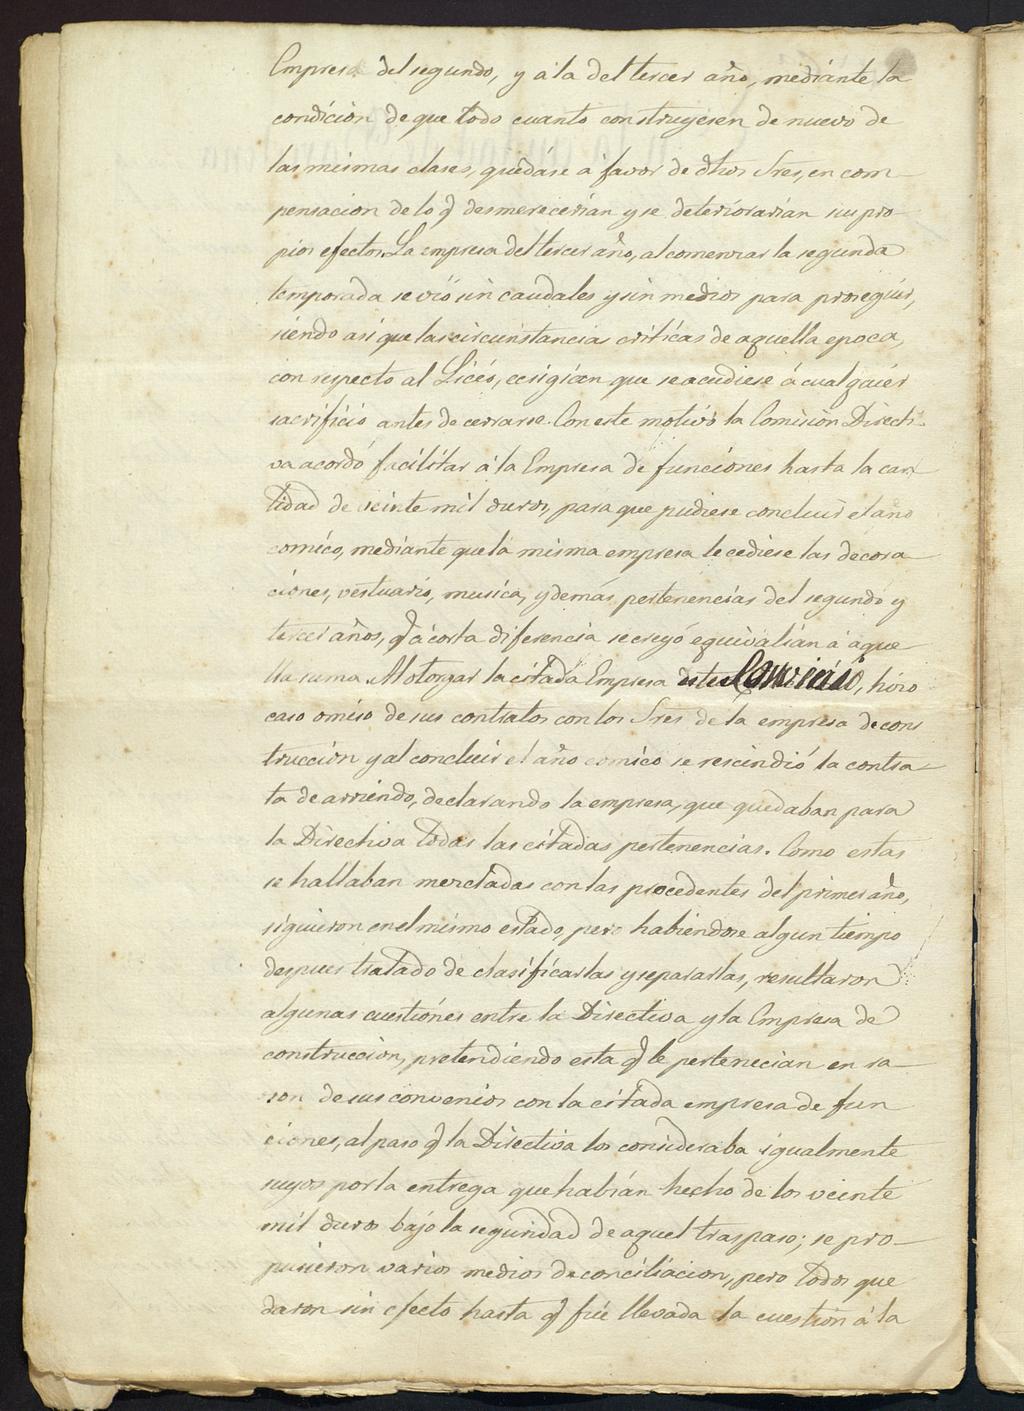 Empresa del segundo, y á la del tercer año, mediante la
condicion de que todo cuanto construyesen de nuevo de
las mismas clases, quedáse á favor de dhos Sres, en com-
pensacion de lo q̃ desmerecerían y se deteriorarían sus pro-
pios efectos. La empresa del tercer año, al comenzar la segunda
temporada se vió sin caudales y sin medios para proseguir,
siendo asi que las circunstancias críticas de aquella epoca,
con respecto al Licéo, ecsigían que se acudiese á cualquier
sacrificio antes de cerrarse. Con este motivo la Comision Directi-
va acordó facilitar á la Empresa de funciones hasta la can-
tidad de veinte mil duros, para que pudiese concluir el año
comico, mediante que la misma empresa le cediese las decora-
ciones, vestuario, musica, y demás pertenencias del segundo y
tercer años, q̃ á corta diferencia se creyó equivalían á aque-
lla suma. Al otorgar la citada Empresa este Convenio, hizo
caso omiso de sus contratos con los Sres de la empresa de cons
truccion y al concluir el año comico se rescindió la contra-
ta de arriendo, declarando la empresa, que quedaban para
la Directiva todas las citadas pertenencias. Como estas
se hallaban mezcladas con las procedentes del primer año,
siguieron en el mismo estado, pero habiendose algun tiempo
despues tratado de clasificarlas y separarlas, resultaron
algunas cuestiones entre la Directiva y la Empresa de
construccion, pretendiendo esta q̃ le pertenecian en ra-
zon de sus convenios con la citada empresa de fun
ciones, al paso q̃ la Directiva los consideraba igualmente
suyos por la entrega que habían hecho de los veinte
mil duros bajo la seguridad de aquel traspaso; se pro-
pusieron varios medios de conciliacion, pero todos que
daron sin efecto hasta q̃ fué llevada la cuestion á la